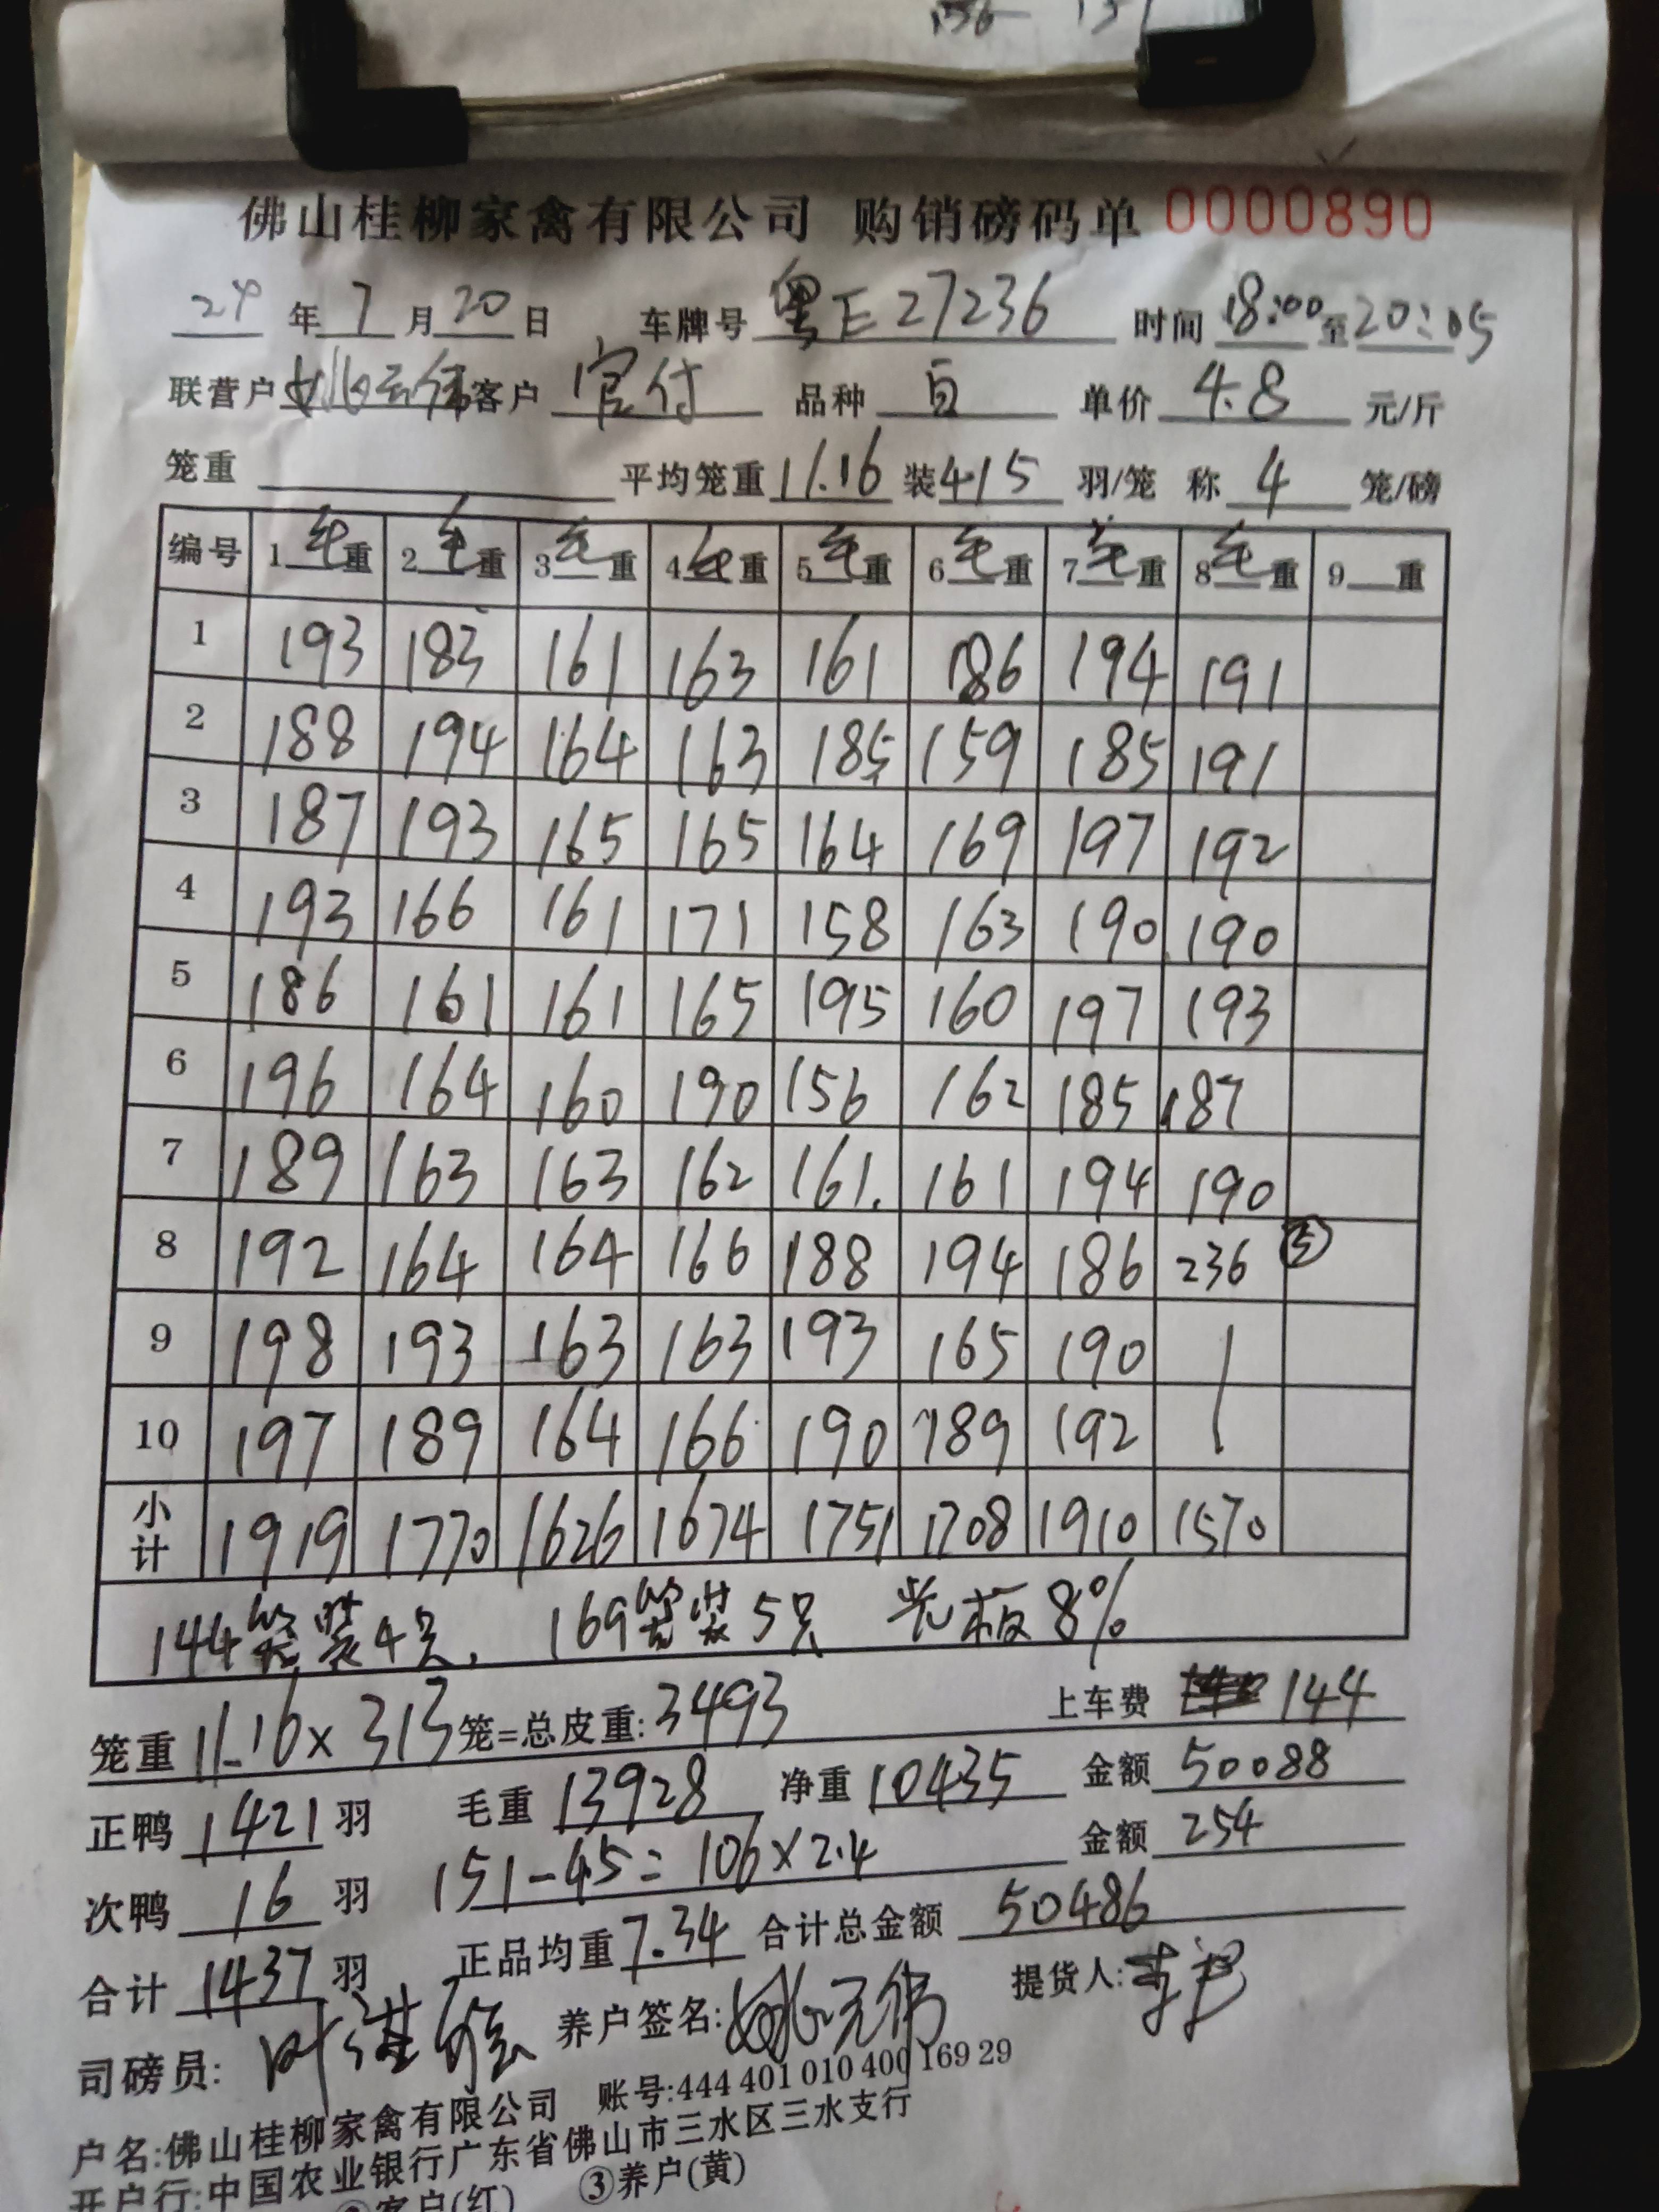 佛山桂柳家禽有限公司 购销磅码单 0000890
24 年 7 月 20 日 车牌号 粤E27236 时间 18:00 至 20:05
联营户 姚云伟 客户 官付 品种 白 单价 4.8 元/斤
笼重 平均笼重 11.16 装 4/5 羽/笼 称 4 笼/磅
编号 1 毛 重 2 毛 重 3 毛 重 4 毛 重 5 毛 重 6 毛 重 7 毛 重 8 毛 重 9 重
1 193 183 161 163 161 186 194 191
2 188 194 164 163 185 159 185 191
3 187 193 165 165 164 169 197 192
4 193 166 161 171 158 163 190 190
5 186 161 161 165 195 160 197 193
6 196 164 160 190 156 162 185 187
7 189 163 163 162 161. 161 194 190
8 192 164 164 166 188 194 186 236 ⑤
9 198 193 163 163 193 165 190
10 197 189 164 166 190 189 192
小计 1919 1770 1626 1674 1751 1708 1910 1570
144笼装4只, 169笼装5只 光板8%
笼重 11.16 × 313 笼=总皮重: 3493 上车费 144
正鸭 1421 羽 毛重 13928 净重 10435 金额 50088
次鸭 16 羽 151-45=106×2.4 金额 254
合计 1437 羽 正品均重 7.34 合计总金额 50486
司磅员: 养户签名: 提货人:
户名:佛山桂柳家禽有限公司 账号:444 401 010 400 169 29
开户行:中国农业银行广东省佛山市三水区三水支行
客户(红) ③养户(黄)